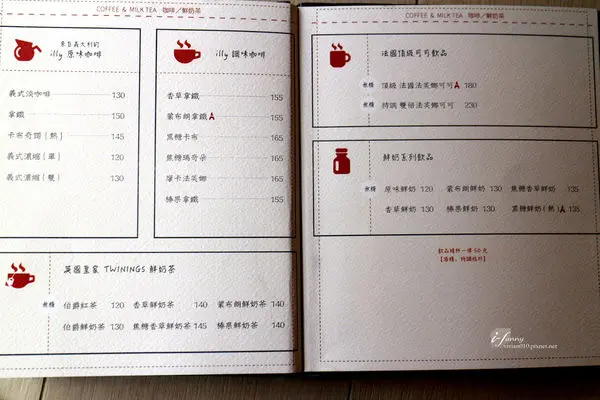 COFFEE & MILK TEA 咖啡／鮮奶茶
來自義大利的
illy 原味咖啡
義式淡咖啡 130
拿鐵 150
卡布奇諾(熱) 145
義式濃縮(單) 120
義式濃縮(雙) 130
illy 調味咖啡
香草拿鐵 155
蒙布朗拿鐵 155
黑糖卡布 165
焦糖瑪奇朵 165
摩卡法芙娜 165
榛果拿鐵 155
英國皇家 TWININGS 鮮奶茶
無糖 伯爵紅茶 120 香草鮮奶茶 140 蒙布朗鮮奶茶 140
伯爵鮮奶茶 130 焦糖香草鮮奶茶 145 榛果鮮奶茶 140
COFFEE & MILK TEA 咖啡／鮮奶茶
法國頂級可可飲品
無糖 頂級 法國法芙娜可可 180
無糖 特調 雙倍法芙娜可可 230
鮮奶系列飲品
無糖 原味鮮奶 120 蒙布朗鮮奶 130 焦糖香草鮮奶 135
香草鮮奶 130 榛果鮮奶 130 黑糖鮮奶(熱) 135
飲品續杯一律 50 元
i-fanny
vivian910.pixnet.net